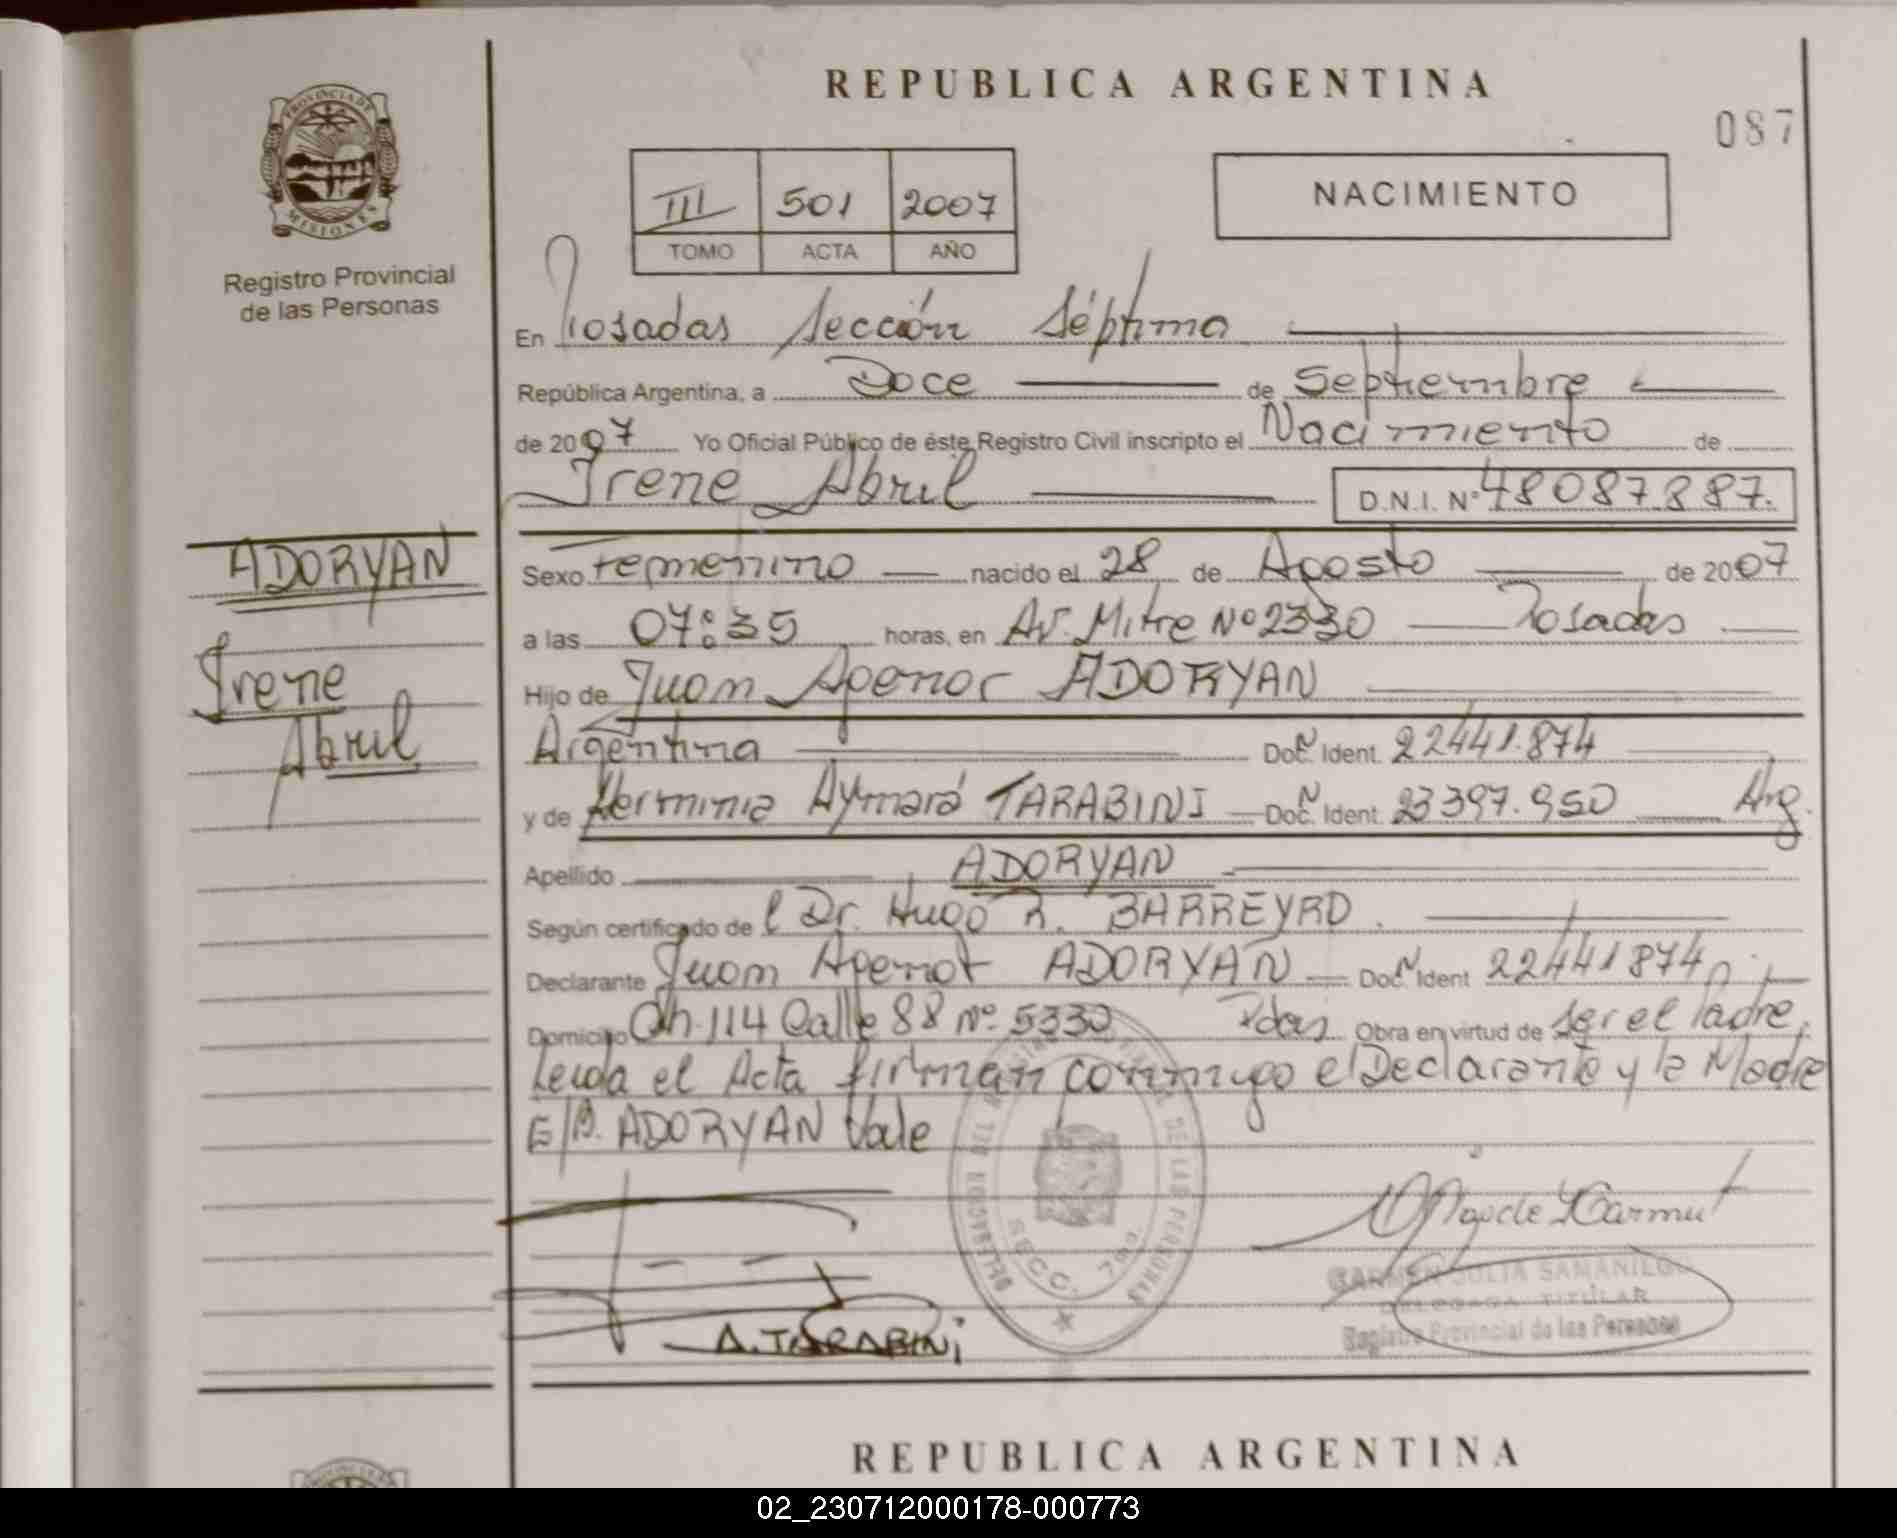 REPUBLICA ARGENTINA
087
PROVINCIA DE
MISIONES
Registro Provincial
de las Personas
III 501 2007
TOMO ACTA AÑO
NACIMIENTO
En Posadas Sección Séptima
República Argentina, a Doce de Septiembre
de 2007 Yo Oficial Público de éste Registro Civil inscripto el Nacimiento de
Irene Abril D.N.I. Nº 48087887.
ADORYAN
Irene
Abril
Sexo Femenino nacido el 28 de Agosto de 2007
a las 07:35 horas, en Av. Mitre Nº 2330 Posadas
Hijo de Juan Agenor ADORYAN
Argentina Doc. Nº Ident. 22441.874
y de Herminia Aymará TARABINI Doc. Nº Ident. 23397.950 Arg.
Apellido ADORYAN
Según certificado de l Dr. Hugo R. BARREYRO.
Declarante Juan Agenor ADORYAN Doc. Nº Ident 22441874
Domicilio Ch. 114 Calle 88 Nº 5330 Pdas Obra en virtud de ser el Padre,
Leida el Acta firman conmigo el Declarante y la Madre
E/B. ADORYAN Vale
SECC. 7ma.
DE LAS PERSONAS
A. TARABINI
CARMEN JULIA SAMANIEGO
DELEGADA TITULAR
Registro Provincial de las Personas
REPUBLICA ARGENTINA
02_230712000178-000773